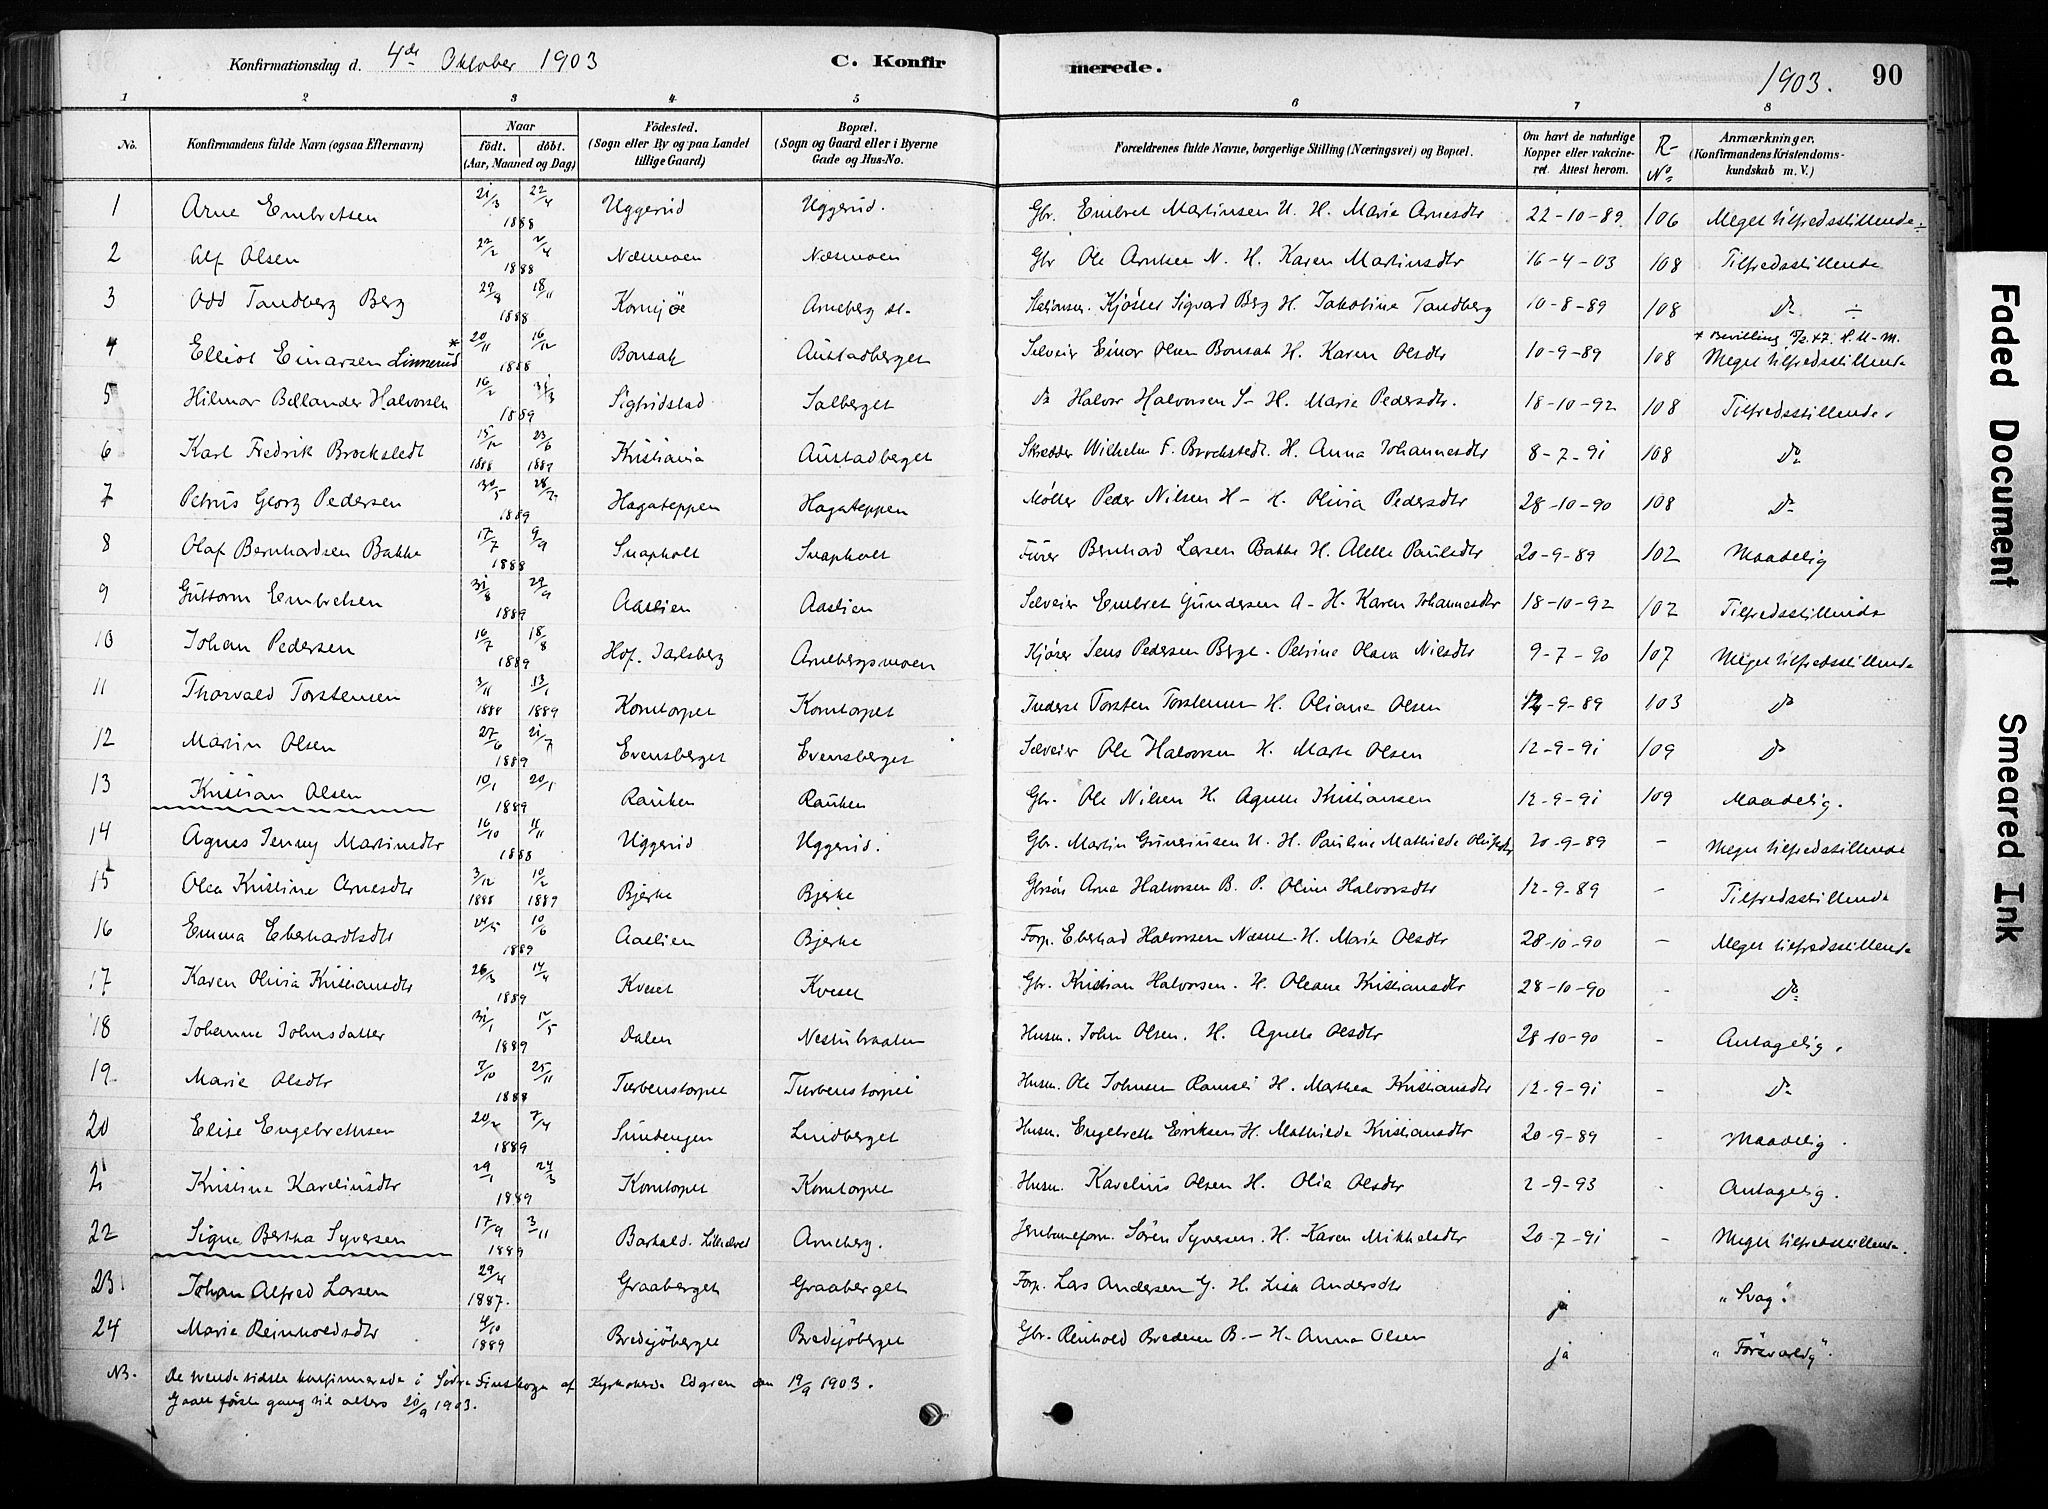 Konfirmationsdag d. 4de Oktober 1903 C. Konfir
merede. 1903. 90
1 2 3 4 5 6 7 8
No. Konfirmandens fulde Navn (ogsaa Efternavn) Naar födt. döbt. (Aar, Maaned og Dag) Födested. (Sogn eller By og paa Landet tillige Gaard) Bopæl. (Sogn og Gaard eller i Byerne Gade og Hus-No. Forældrenes fulde Navne, borgerlige Stilling (Næringsvei) og Bopæl. Om havt de naturlige Kopper eller vakcineret. Attest herom. R-No Anmærkninger, (Konfirmandens Kristendomskundskab m. V.)
1 Arne Embretsen 21/3 22/4 1888 Uggerud Uggerud. Gbr. Embret Martinsen U. H. Marie Arnesdtr 22-10-89. 106 Meget tilfredsstillende ÷
2 Alf Olsen 22/2 2/4 1888 Næsmoen Næsmoen Gbr Ole Arnesen N. H. Karen Martinsdtr 16-4-03 108 Tilfredsstillende
3 Odd Tandberg Berg 29/8 18/11 1888 Kornsjöe Arneberg st. Kjöstel Sigvard Berg H. Jakobine Tandberg 10-8-89 108 Do ÷
4 Elliot Einarsen Linnerud* 20/11 16/12 1888 Bonsak Austadberget Selveier Einar Olsen Bonsak H. Karen Olsdtr 10-9-89 108 * Bevilling 5/2 47. Meget tilfredsstillende
5 Hilmar Bellander Halvorsen 16/2 31/3 1889 Sigfridstad Salberget Do Halvor Halvorsen S- H. Marie Pedersdtr. 18-10-92 108 Tilfredsstillende.
6 Karl Fredrik Brockstedt 15/12 1888 23/6 1889 Kristiania Austadberget Skrædder Wilhelm F. Brockstedt. H. Anna Johannesdtr 8-7-91 108 Do
7 Petrus Georg Pedersen 30/5 28/7 1889 Hagateppen Hagateppen Möller Peder Nilsen H- H. Olivia Pedersdtr 28-10-90 108 Do
8 Olaf Bernhardsen Bakke 17/7 9/9 1888 Snapholt Snapholt Bernhard Larsen Bakke H. Alette Paulsdtr 20-9-89 102 Maadelig
9 Guttorm Embretsen 31/8 29/9 1889 Aaslien Aaslien Selveier Embret Gundersen A- H. Karen Johannesdtr 18-10-92 102 Tilfredsstillende
10 Johan Pedersen 16/7 18/8 1889 Hof. Jarlsberg Arnebergsmoen Jens Pedersen Berge. Petrine Olava Nilsdtr 9-7-90 107 Meget tilfredsstillende
11 Thorvald Torstensen 3/11 1888 13/1 1889 Korntorpet Korntorpet Inderst Torsten Torstensen H. Oliane Olsen 12-9-89 103 Do
12 Martin Olsen 27/6 21/7 1889 Evensberget Evensberget Selveier Ole Halvorsen H. Marte Olsen 12-9-91 109 Do
13 Kristian Olsen 10/1 20/1 1889 Rauken Rauken Gbr. Ole Nilsen H. Agnete Kristiansen 12-9-91 109 Maadelig.
14 Agnes Jenny Martinsdtr 16/10 11/11 1888 Uggerud Uggerud. Gbr. Martin Guneriusen U. H. Pauline Mathilde 20-9-89 - Meget tilfredsstillende
15 Olea Kristine Arnesdtr 3/12 1888 10/2 1889 Bjerke Bjerke Gbrsön Arne Halvorsen B. P. Oline Halvorsdtr 12-9-89 - Tilfredsstillende
16 Emma Eberhardtsdtr 24/5 10/6 1889 Aaslien Bjerke Forp. Eberhad Halvorsen H. Marie Olsdtr 28-10-90 - Meget tilfredsstillende
17 Karen Olivia Kristiansdtr 26/3 14/4 1889 Kveset Kveset Gbr. Kristian Halvorsen. H. Oleane Kristiansdtr 28-10-90 - Do
18 Johanne Johnsdatter 31/1 12/5 1889 Dalen Nestubraaten Husm. John Olsen. H. Agnete Olsdtr 28-10-90 - Antagelig.
19 Marie Olsdtr 7/10 25/11 1888 Turbenstorpet Turbenstorpet Husm. Ole Johnsen H. Marthea Kristiansdtr 12-9-91 - Do
20 Elise Engebrethsen 20/2 7/4 1889 Sundengen Lindberget Husm. Engebreth Eriksen H. Mathilde Kristiansdtr 20-9-89 - Maadelig.
21 Kristine Kareliusdtr 29/1 24/3 1889 Korntorpet Korntorpet Husm. Karelius Olsen H. Olia Olsdtr 2-9-93 - Antagelig.
22 Signe Bertha Syversen 17/9 3/11 1889 Barkald. Lilleelvd Arneberg. Jernbaneform. Sören Syversen. H. Karen Mikkelsdtr 20-7-91 - Meget tilfredsstillende.
23 Johan Alfred Larsen 29/4 1887. Graaberget Graaberget Forp. Lars Andersen G. H. Lisa Andersdtr ja "Svag".
24 Marie Reinholdsdtr 4/10 1889 Bredsjöberget Bredsjöberget Gbr. Reinhold Bredesen B. - H. Anna Olsen ja "Försvarlig".
NB. De tvende sidste konfirmerede i Södra Finskoga af Kyrkoherde Edgren den 19/9 1903.
Gaat förste gang til alters 20/9 1903.
Faded Document
Smeared Ink